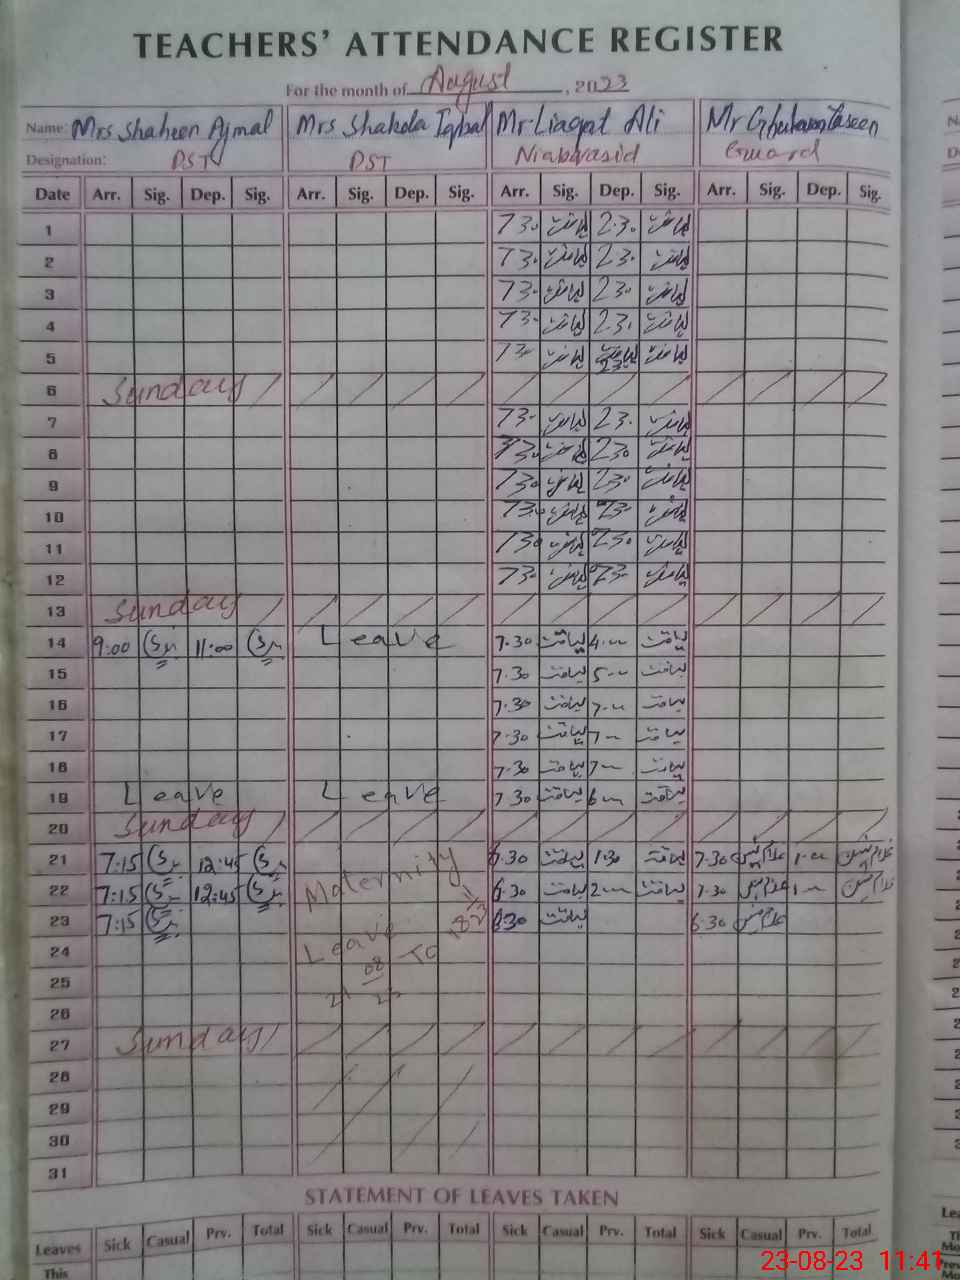 TEACHERS' ATTENDANCE REGISTER
For the month of August, 2023
Name: Mrs Shaheen Ajmal Mrs Shakela Iqbal Mr Liaqat Ali Mr Ghulam
Designation: PST PST Guard
Date Arr. Sig. Dep. Sig. Arr. Sig. Dep. Sig. Arr. Sig. Dep. Sig. Arr. Sig. Dep. Sig.
1 730 لیاقت 2.30 لیاقت
2 730 لیاقت 230 لیاقت
3 730 لیاقت 230 لیاقت
4 730 لیاقت 230 لیاقت
5 730 لیاقت 230 لیاقت
6 Sunday
7 730 لیاقت 230 لیاقت
8 730 لیاقت 230 لیاقت
9 730 لیاقت 230 لیاقت
10 730 لیاقت 230 لیاقت
11 730 لیاقت 230 لیاقت
12 730 لیاقت 230 لیاقت
13 Sunday
14 9:00 11:00 Leave 7.30 لیاقت 4.00 لیاقت
15 7.30 لیاقت 5.00 لیاقت
16 7.30 لیاقت 7.00 لیاقت
17 7.30 لیاقت 7.00 لیاقت
18 7.30 لیاقت 7.00 لیاقت
19 Leave Leave 7.30 لیاقت 6.00 لیاقت
20 Sunday
21 7:15 12:45 Maternity 6.30 لیاقت 1.30 لیاقت 7.30 1.00
22 7:15 12:45 6.30 لیاقت 2.00 لیاقت 7.30 1.00
23 7:15 6.30 لیاقت 6.30
24 Leave To
25 21 08
26
27 Sunday
28
29
30
31
STATEMENT OF LEAVES TAKEN
Leaves Sick Casual Prv. Total Sick Casual Prv. Total Sick Casual Prv. Total Sick Casual Prv. Total
This
23-08-23 11:41